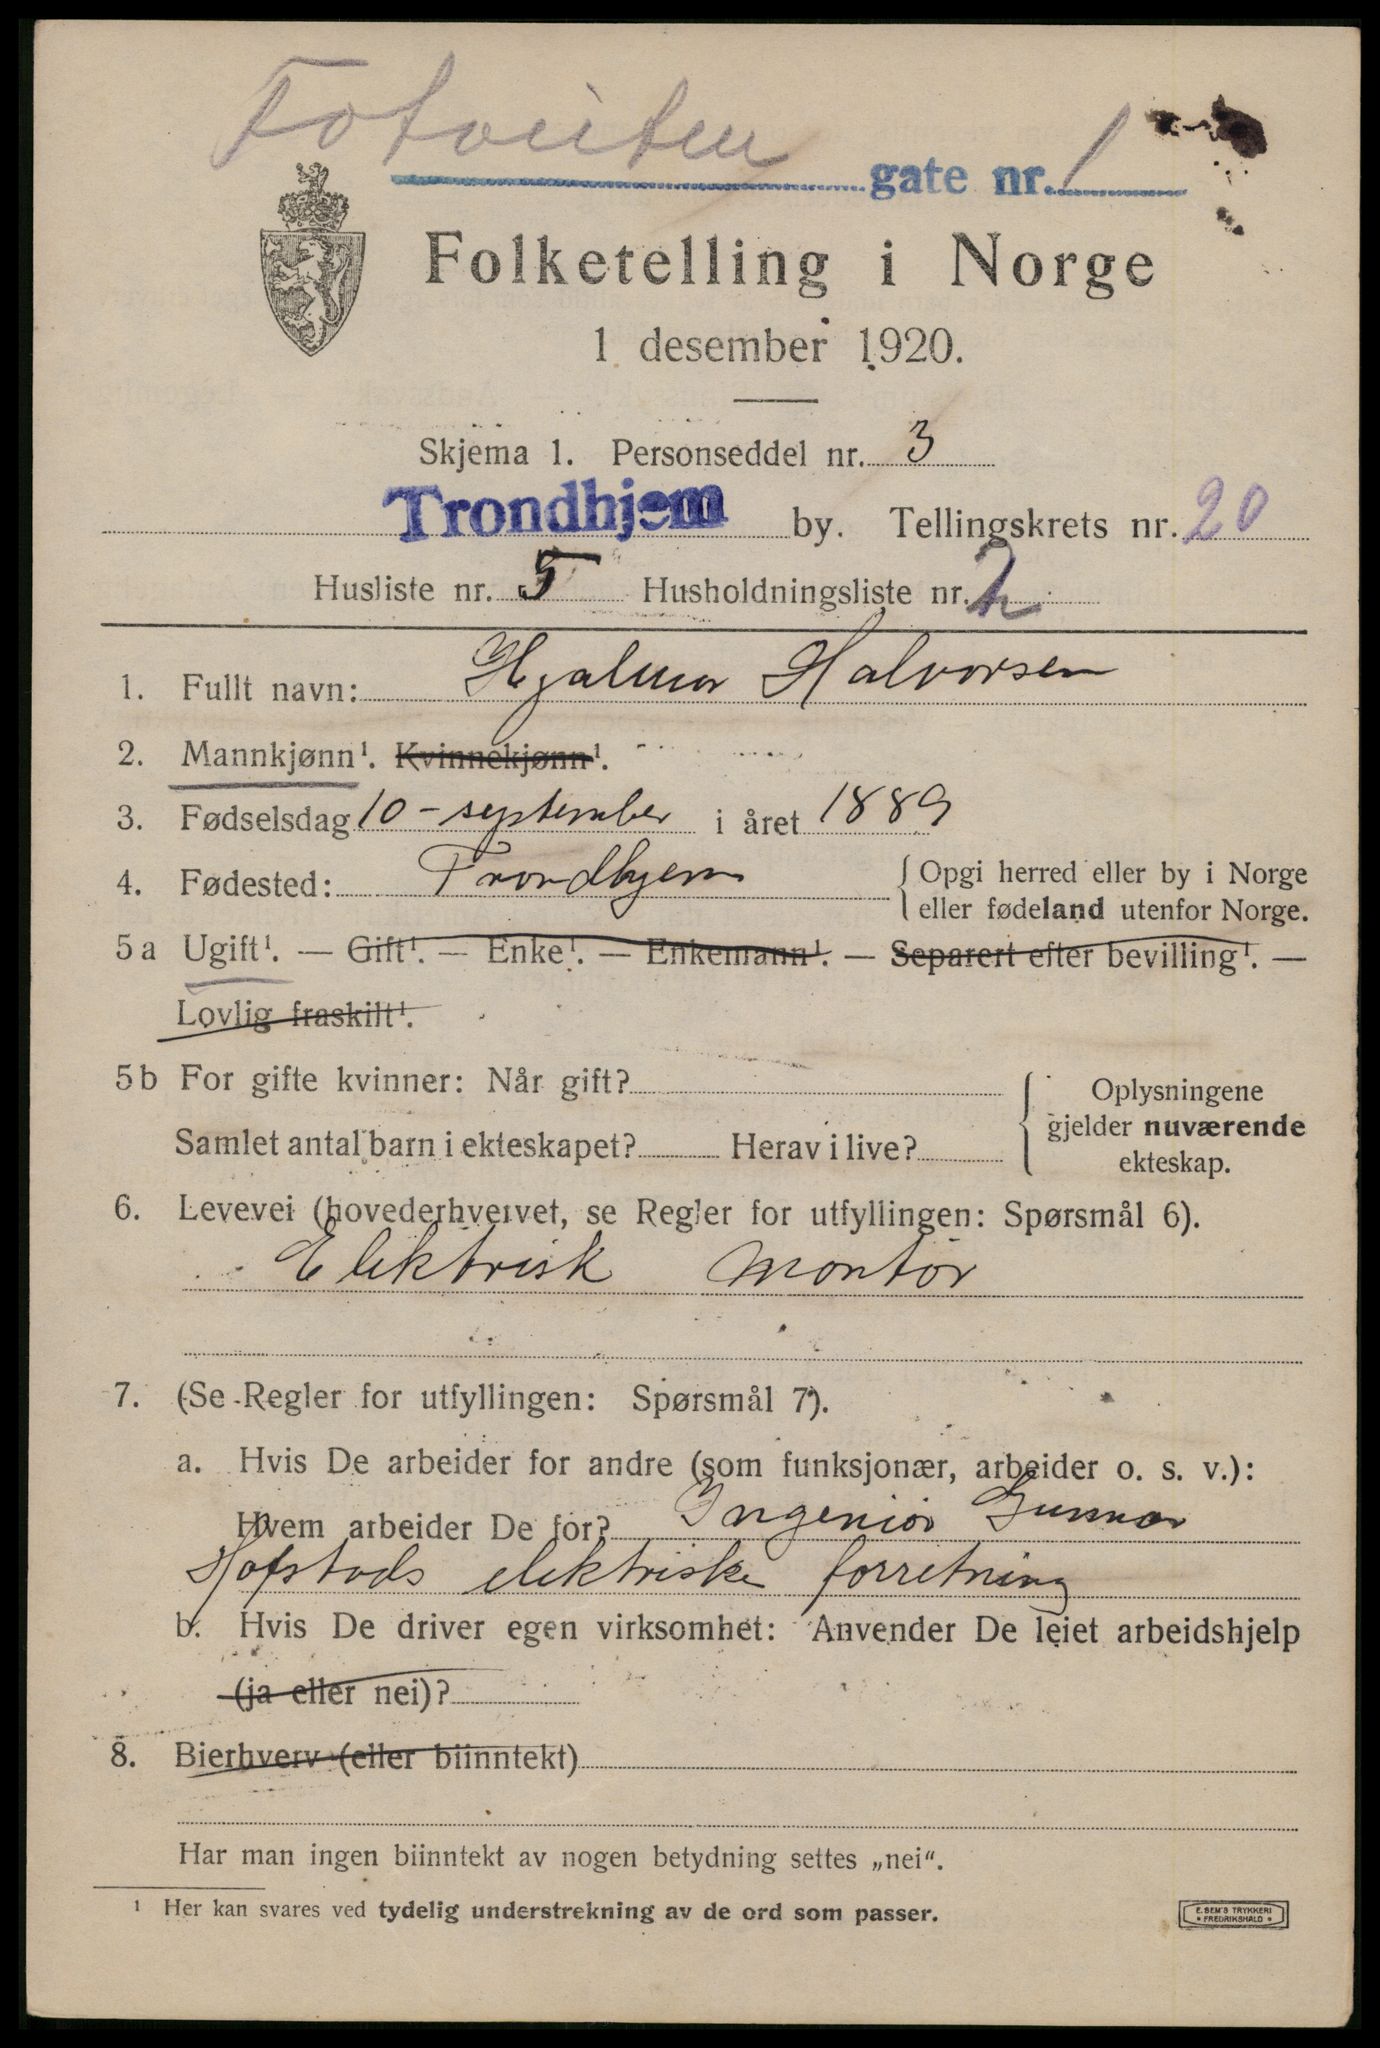 Totveiten gate nr. 1
Folketelling i Norge
1 desember 1920.
Skjema 1. Personseddel nr. 3
Trondhjem by. Tellingskrets nr. 20
Husliste nr. 5 Husholdningsliste nr. 2
1. Fullt navn: Hjalmar Halvorsen
2. Mannkjønn¹. Kvinnekjønn¹.
3. Fødselsdag 10 - september i året 1889
4. Fødested: Trondhjem { Opgi herred eller by i Norge
eller fødeland utenfor Norge.
5a Ugift¹. — Gift¹. — Enke¹. — Enkemann¹. — Separert efter bevilling¹. —
Lovlig fraskilt¹.
5b For gifte kvinner: Når gift? { Oplysningene
gjelder nuværende
ekteskap.
Samlet antal barn i ekteskapet? Herav i live?
6. Levevei (hovederhvervet, se Regler for utfyllingen: Spørsmål 6).
Elektrisk montör
7. (Se Regler for utfyllingen: Spørsmål 7).
a. Hvis De arbeider for andre (som funksjonær, arbeider o. s. v.):
Hvem arbeider De for? Ingeniör Gunnar
Hofstads elektriske forretning
b. Hvis De driver egen virksomhet: Anvender De leiet arbeidshjelp
(ja eller nei)?
8. Bierhverv (eller biinntekt)
Har man ingen biinntekt av nogen betydning settes „nei“.
¹ Her kan svares ved tydelig understrekning av de ord som passer.
E. SEM'S TRYKKERI
FREDRIKSHALD